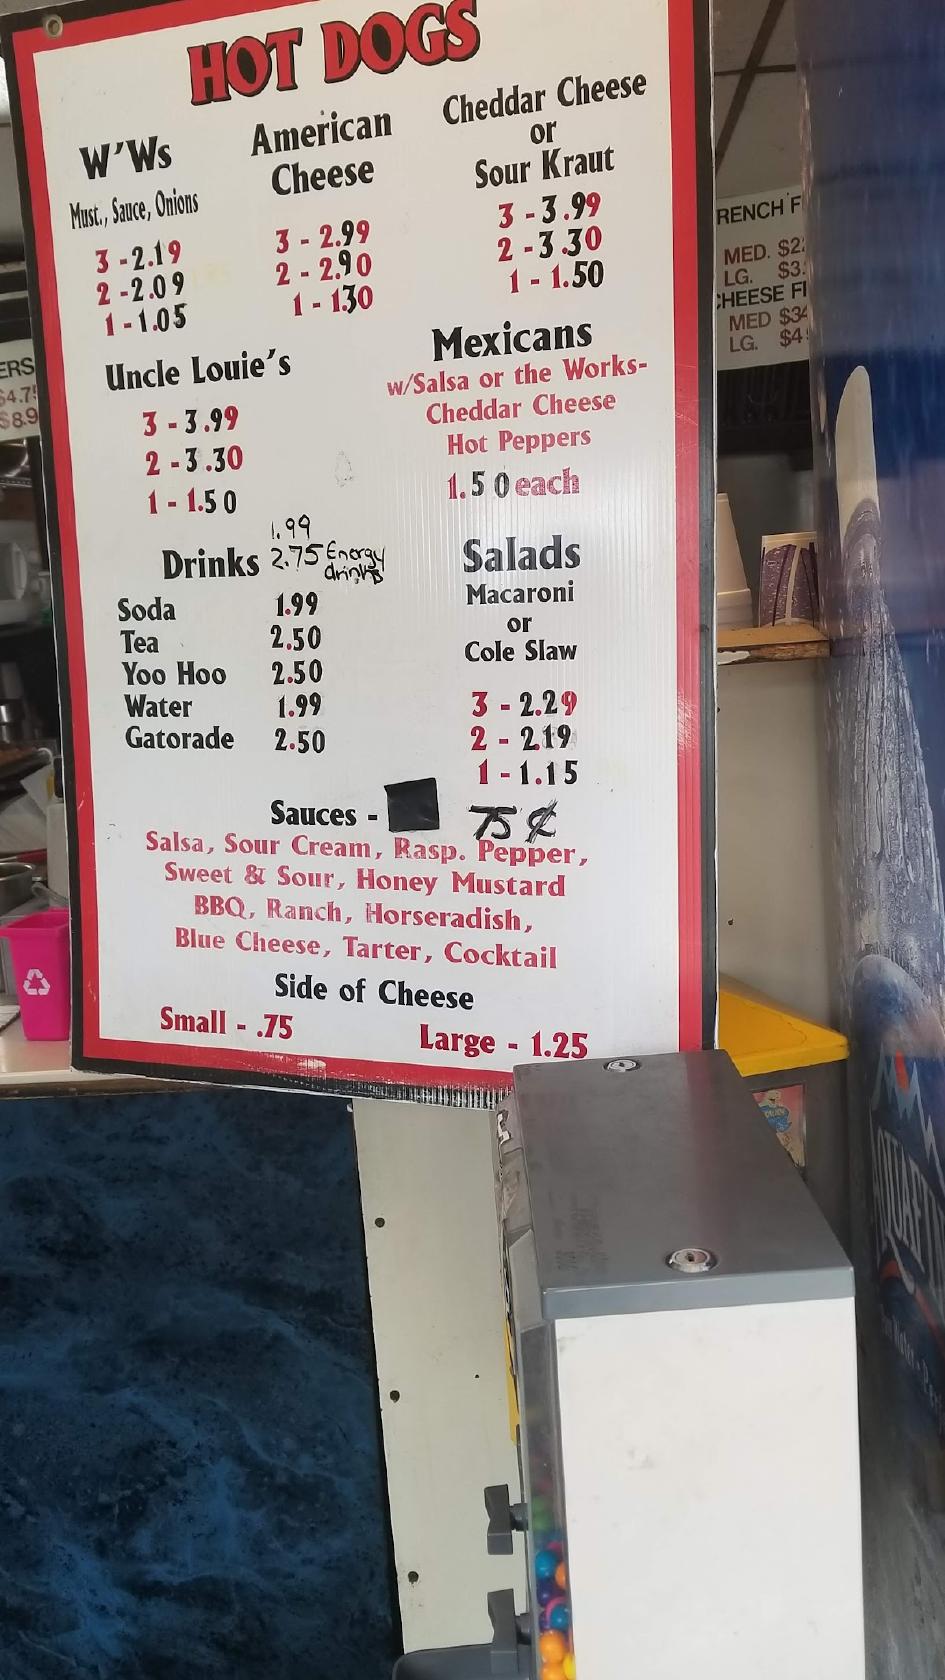 HOT DOGS
W'Ws
Must., Sauce, Onions
3 - 2.19
2 - 2.09
1 - 1.05
American
Cheese
3 - 2.99
2 - 2.90
1 - 1.30
Cheddar Cheese
or
Sour Kraut
3 - 3.99
2 - 3.30
1 - 1.50
Uncle Louie's
3 - 3.99
2 - 3.30
1 - 1.50
Mexicans
w/Salsa or the Works-
Cheddar Cheese
Hot Peppers
1.50 each
Drinks
1.99
2.75 Energy
drinks
Soda 1.99
Tea 2.50
Yoo Hoo 2.50
Water 1.99
Gatorade 2.50
Salads
Macaroni
or
Cole Slaw
3 - 2.29
2 - 2.19
1 - 1.15
Sauces - 75¢
Salsa, Sour Cream, Rasp. Pepper,
Sweet & Sour, Honey Mustard
BBQ, Ranch, Horseradish,
Blue Cheese, Tarter, Cocktail
Side of Cheese
Small - .75 Large - 1.25
RENCH F
MED. $2
LG. $3
CHEESE F
MED $3
LG. $4
ERS
$4.7
$8.9
AQUAFIN